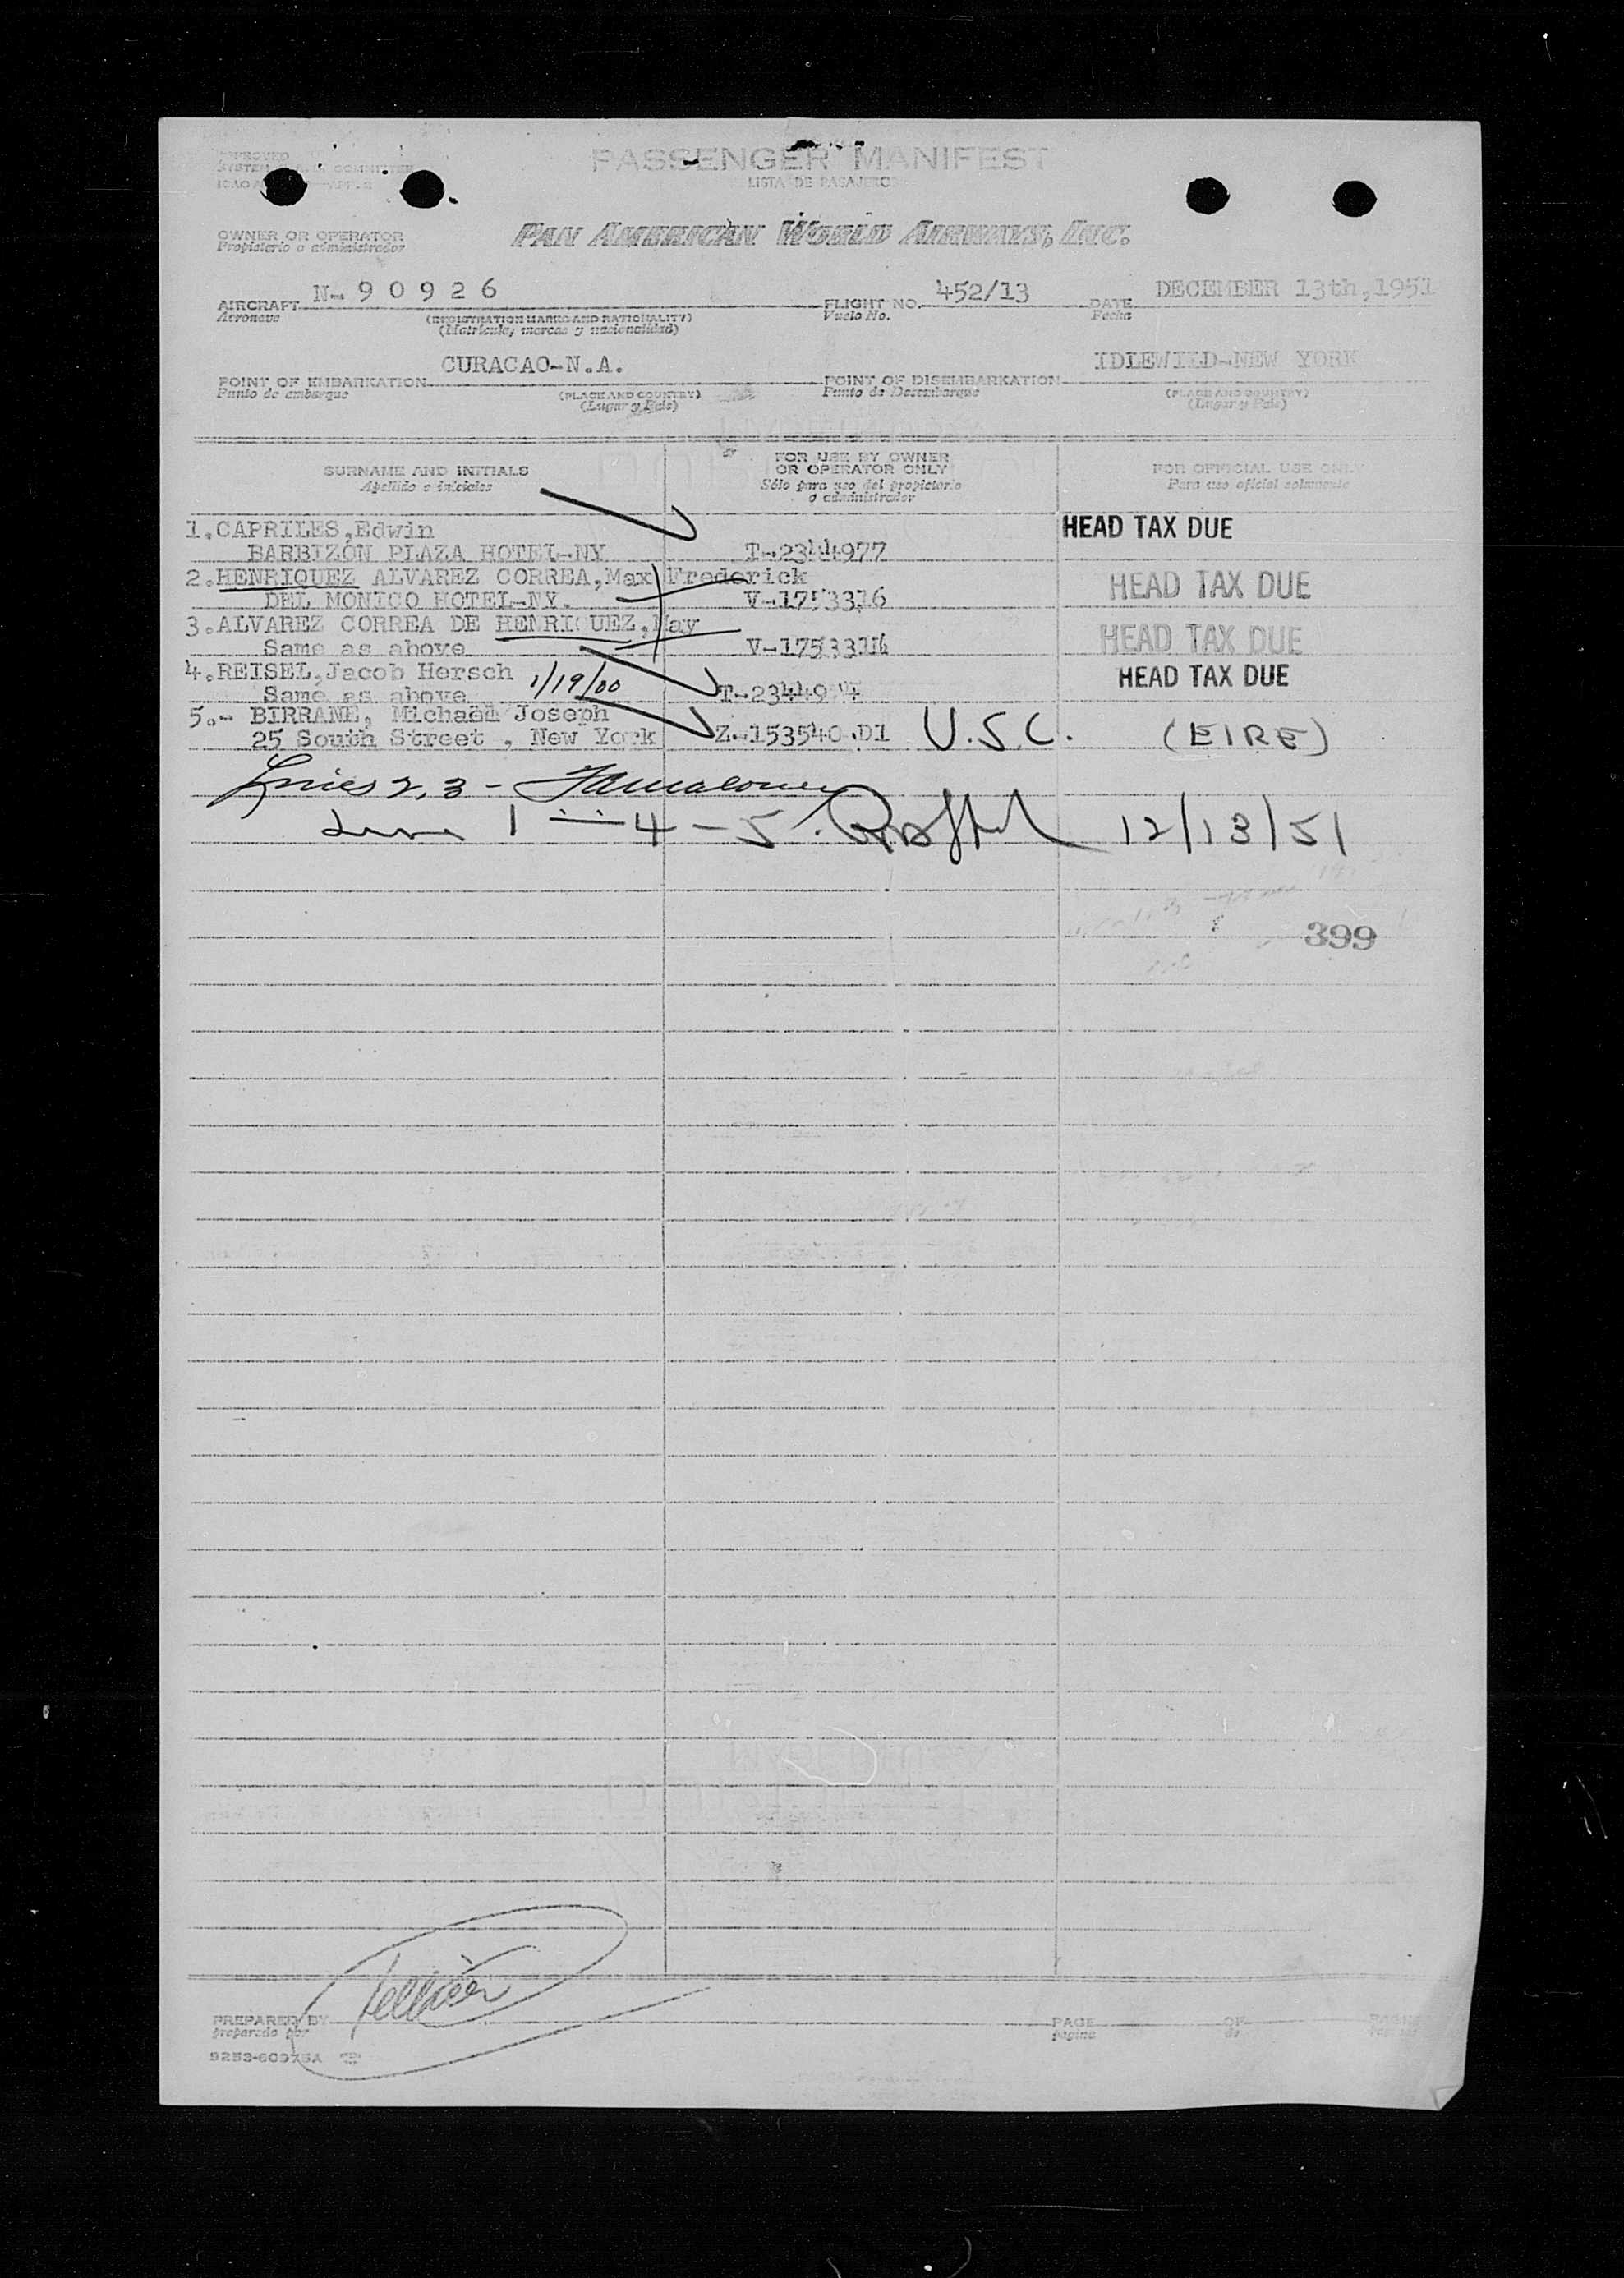 APPROVED
PASSENGER MANIFEST
LISTA DE PASAJEROS
OWNER OR OPERATOR
Propietario o administrador
PAN AMERICAN WORLD AIRWAYS, INC.
AIRCRAFT N-90926 FLIGHT NO. 452/13 DATE DECEMBER 13th,1951
Aeronave (REGISTRATION MARKS AND NATIONALITY) Vuelo No. Fecha
(Matrícula, marcas y nacionalidad)
POINT OF EMBARKATION CURACAO-N.A. POINT OF DISEMBARKATION IDLEWILD-NEW YORK
Punto de embarque (PLACE AND COUNTRY) Punto de Desembarque (PLACE AND COUNTRY)
(Lugar y País) (Lugar y País)
SURNAME AND INITIALS FOR USE BY OWNER OR OPERATOR ONLY FOR OFFICIAL USE ONLY
Apellido e iniciales Sólo para uso del propietario o administrador Para uso oficial solamente
1.CAPRILES,Edwin HEAD TAX DUE
BARBIZON PLAZA HOTEL-NY T-2344977
2.HENRIQUEZ ALVAREZ CORREA,Max Frederick HEAD TAX DUE
DEL MONICO HOTEL-NY. V-1753316
3.ALVAREZ CORREA DE HENRIQUEZ,May HEAD TAX DUE
Same as above
4.REISEL,Jacob Hersch 1/19/00 HEAD TAX DUE
Same as above
5.- BIRRANE, Michael Joseph
25 South Street , New York Z-153540-D1 U.S.C. (EIRE)
Lines 2,3 -
Line 1 - 4 - 5. 12/13/51
399
PREPARED BY PAGE OF PAGES
preparado por página de
9253-60975A